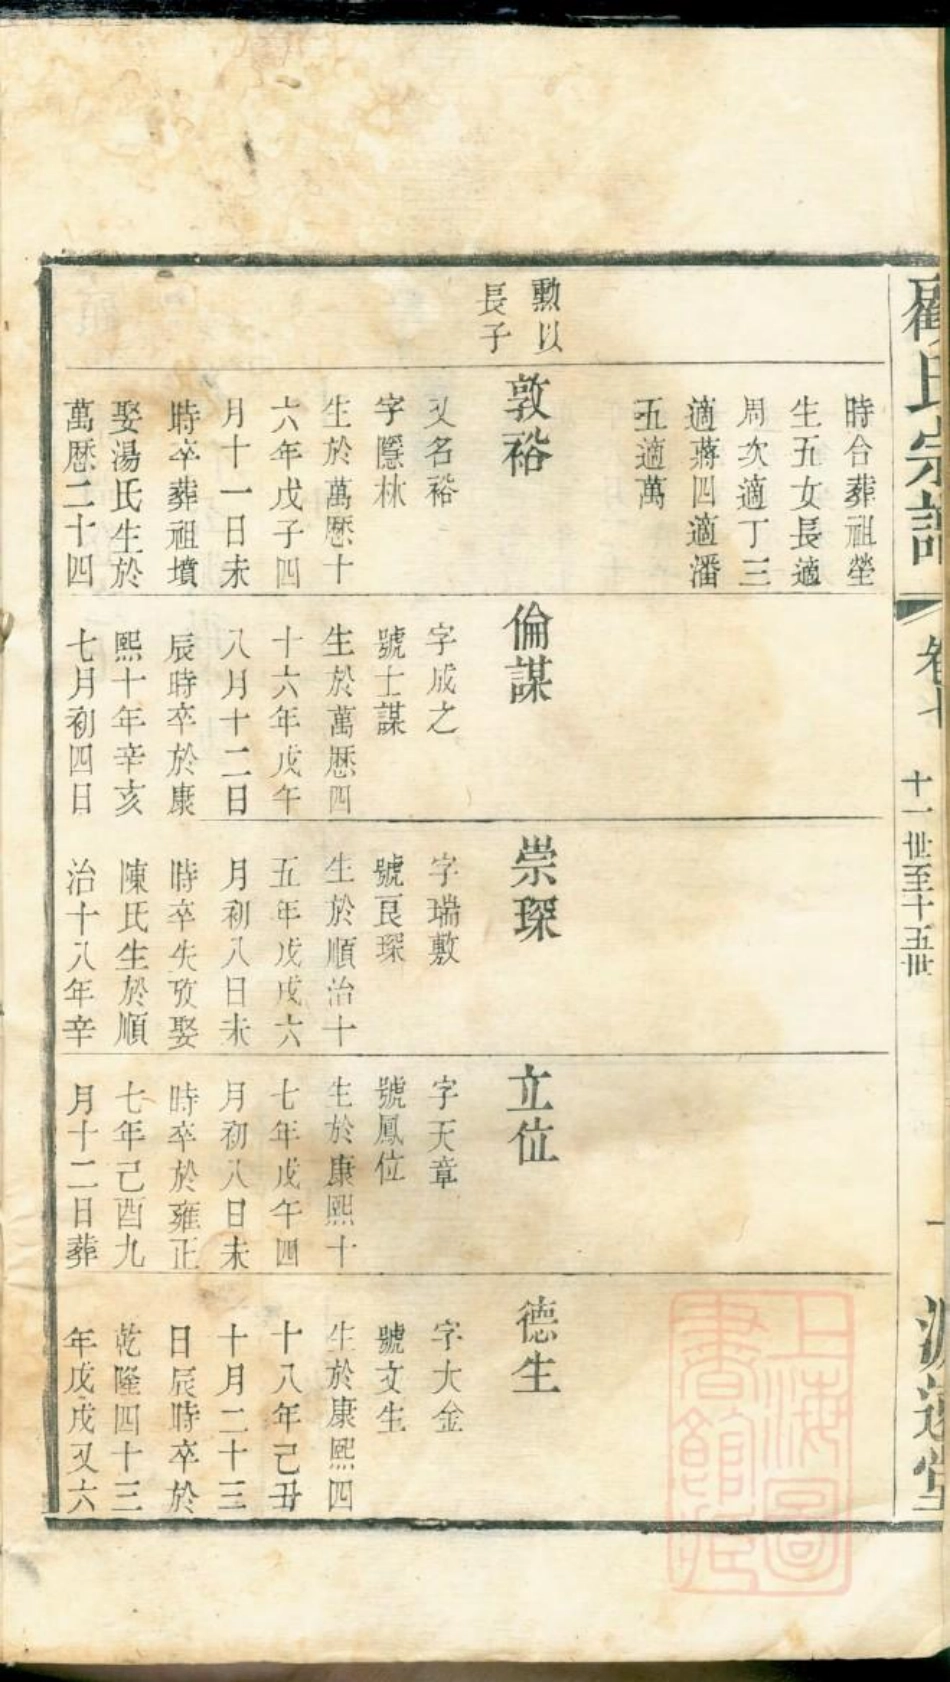 顧氏宗譜
卷七
十一世至十五世
一
源遠堂
時合葬祖塋
生五女長適
周次適丁三
適蔣四適潘
五適萬
勲以
長子
敦裕
又名裕
字隱林
生於萬厯十
六年戊子四
月十一日未
時卒葬祖墳
娶湯氏生於
萬厯二十四
倫謀
字成之
號士謀
生於萬厯四
十六年戊午
八月十二日
辰時卒於康
熙十年辛亥
七月初四日
崇琛
字瑞敷
號艮琛
生於順治十
五年戊戌六
月初八日未
時卒失攷娶
陳氏生於順
治十八年辛
立位
字天章
號鳳位
生於康熙十
七年戊午四
月初八日未
時卒於雍正
七年己酉九
月十二日葬
德生
字大金
號文生
生於康熙四
十八年己丑
十月二十三
日辰時卒於
乾隆四十三
年戊戌又六
上海圖
書館藏